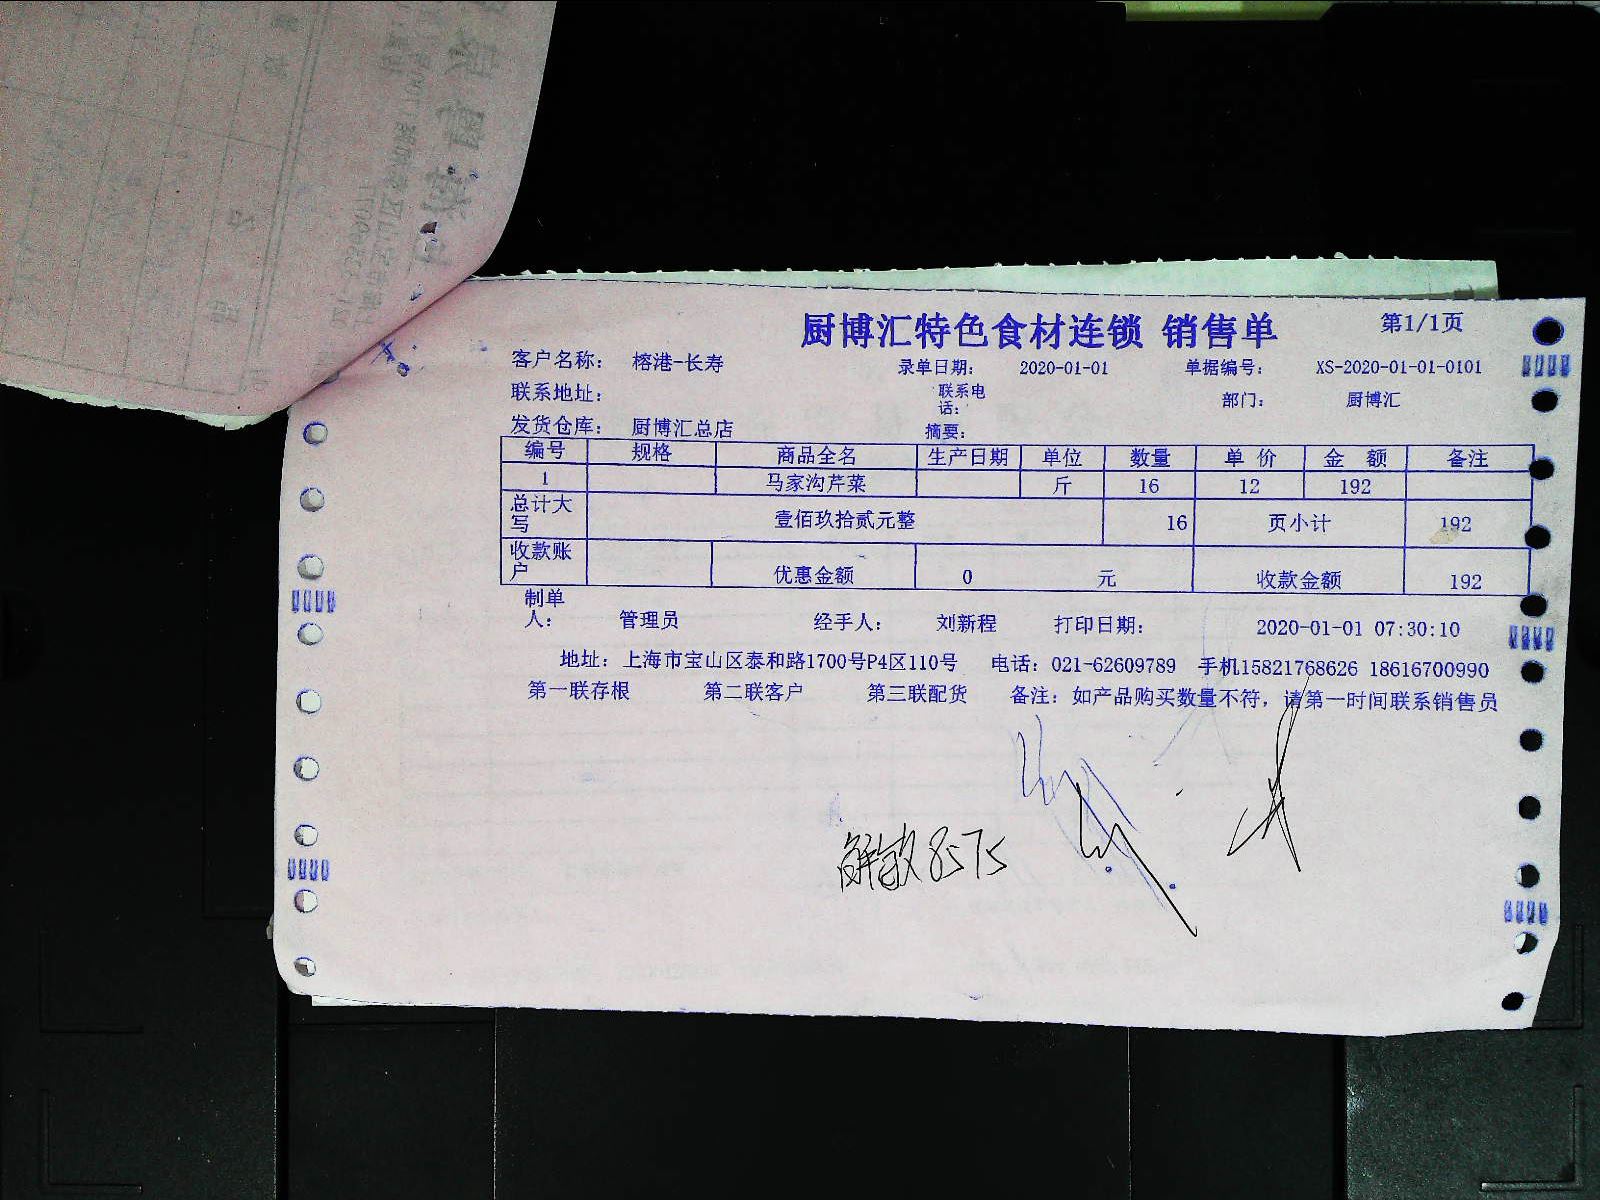 厨博汇特色食材连锁 销售单 第1/1页
客户名称: 榕港-长寿 录单日期: 2020-01-01 单据编号: XS-2020-01-01-0101
联系地址: 联系电话: 部门: 厨博汇
发货仓库: 厨博汇总店 摘要:
编号 规格 商品全名 生产日期 单位 数量 单价 金额 备注
1 马家沟芹菜 斤 16 12 192
总计大写 壹佰玖拾贰元整 16 页小计 192
收款账户 优惠金额 0 元 收款金额 192
制单人: 管理员 经手人: 刘新程 打印日期: 2020-01-01 07:30:10
地址: 上海市宝山区泰和路1700号P4区110号 电话: 021-62609789 手机15821768626 18616700990
第一联存根 第二联客户 第三联配货 备注: 如产品购买数量不符, 请第一时间联系销售员